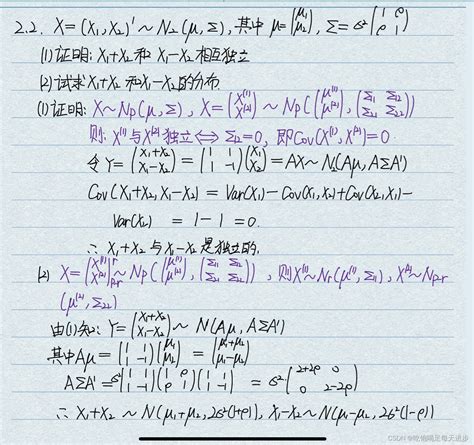 2.2. X=(X₁,X₂)'~N₂(μ,Σ),其中 μ=(μ₁ μ₂), Σ=σ²(1 ρ ρ 1)
(1)证明:X₁+X₂和 X₁-X₂相互独立
(2)试求X₁+X₂和X₁-X₂的分布
(1)证明: X~Np(μ,Σ), X=(X⁽¹⁾ X⁽²⁾)~Np((μ⁽¹⁾ μ⁽²⁾),(Σ₁₁ Σ₁₂ Σ₂₁ Σ₂₂))
则: X⁽¹⁾与X⁽²⁾独立⟺Σ₁₂=0, 即Cov(X⁽¹⁾,X⁽²⁾)=0
令Y=(X₁+X₂ X₁-X₂)=(1 1 1 -1)(X₁ X₂)=AX~N₂(Aμ,AΣA')
Cov(X₁+X₂,X₁-X₂)=Var(X₁)-Cov(X₁,X₂)+Cov(X₂,X₁)-
Var(X₂) =1-1=0.
∴ X₁+X₂ 与X₁-X₂ 是独立的.
(2) X=(X⁽¹⁾ X⁽²⁾) r p-r ~Np((μ⁽¹⁾ μ⁽²⁾),(Σ₁₁ Σ₁₂ Σ₂₁ Σ₂₂)) ,则X⁽¹⁾~Nr(μ⁽¹⁾,Σ₁₁), X⁽²⁾~Np-r
(μ⁽²⁾,Σ₂₂)
由(1)知: Y=(X₁+X₂ X₁-X₂)~N(Aμ,AΣA')
其中Aμ=(1 1 1 -1)(μ₁ μ₂)=(μ₁+μ₂ μ₁-μ₂)
AΣA'=σ²(1 1 1 -1)(1 ρ ρ 1)(1 1 1 -1)=σ²(2+2ρ 0 0 2-2ρ)
∴ X₁+X₂~N(μ₁+μ₂,2σ²(1+ρ)), X₁-X₂~N(μ₁-μ₂,2σ²(1-ρ))